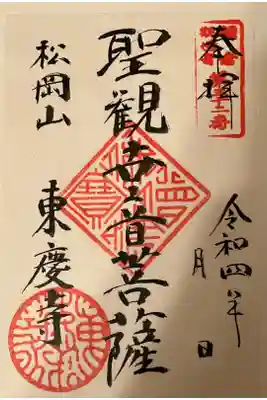 奉拝
令和四年
月 日
聖観世音菩薩
松岡山
東慶寺